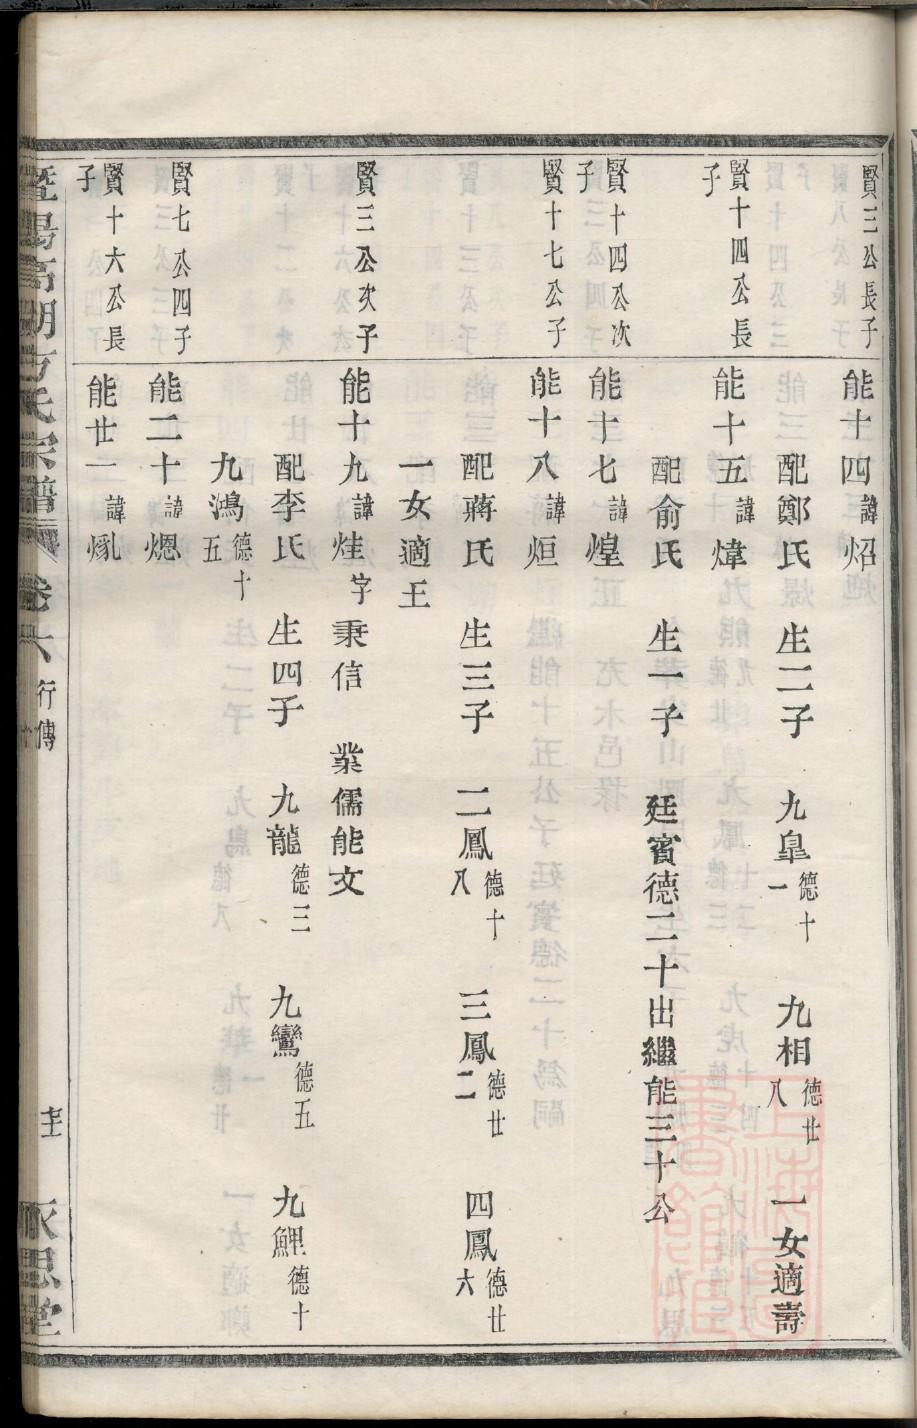 賢三公長子
能十四諱炤
配鄭氏 生二子 九皐德十一 九相德廿八 一女適壽
賢十四公長子
能十五諱煒
配俞氏 生一子 廷賓德二十出繼能三十公
賢十四公次子
能十七諱煌
賢十七公子
能十八諱烜
配蔣氏 生三子 二鳳德十八 三鳳德廿二 四鳳德廿六
一女適王
賢三公次子
能十九諱烓字秉信 業儒能文
配李氏 生四子 九龍德三 九鸞德五 九鯉德十
九鴻德十五
賢七公四子
能二十諱煾
賢十六公長子
能廿一諱
暨陽高湖方氏宗譜 卷六 行傳